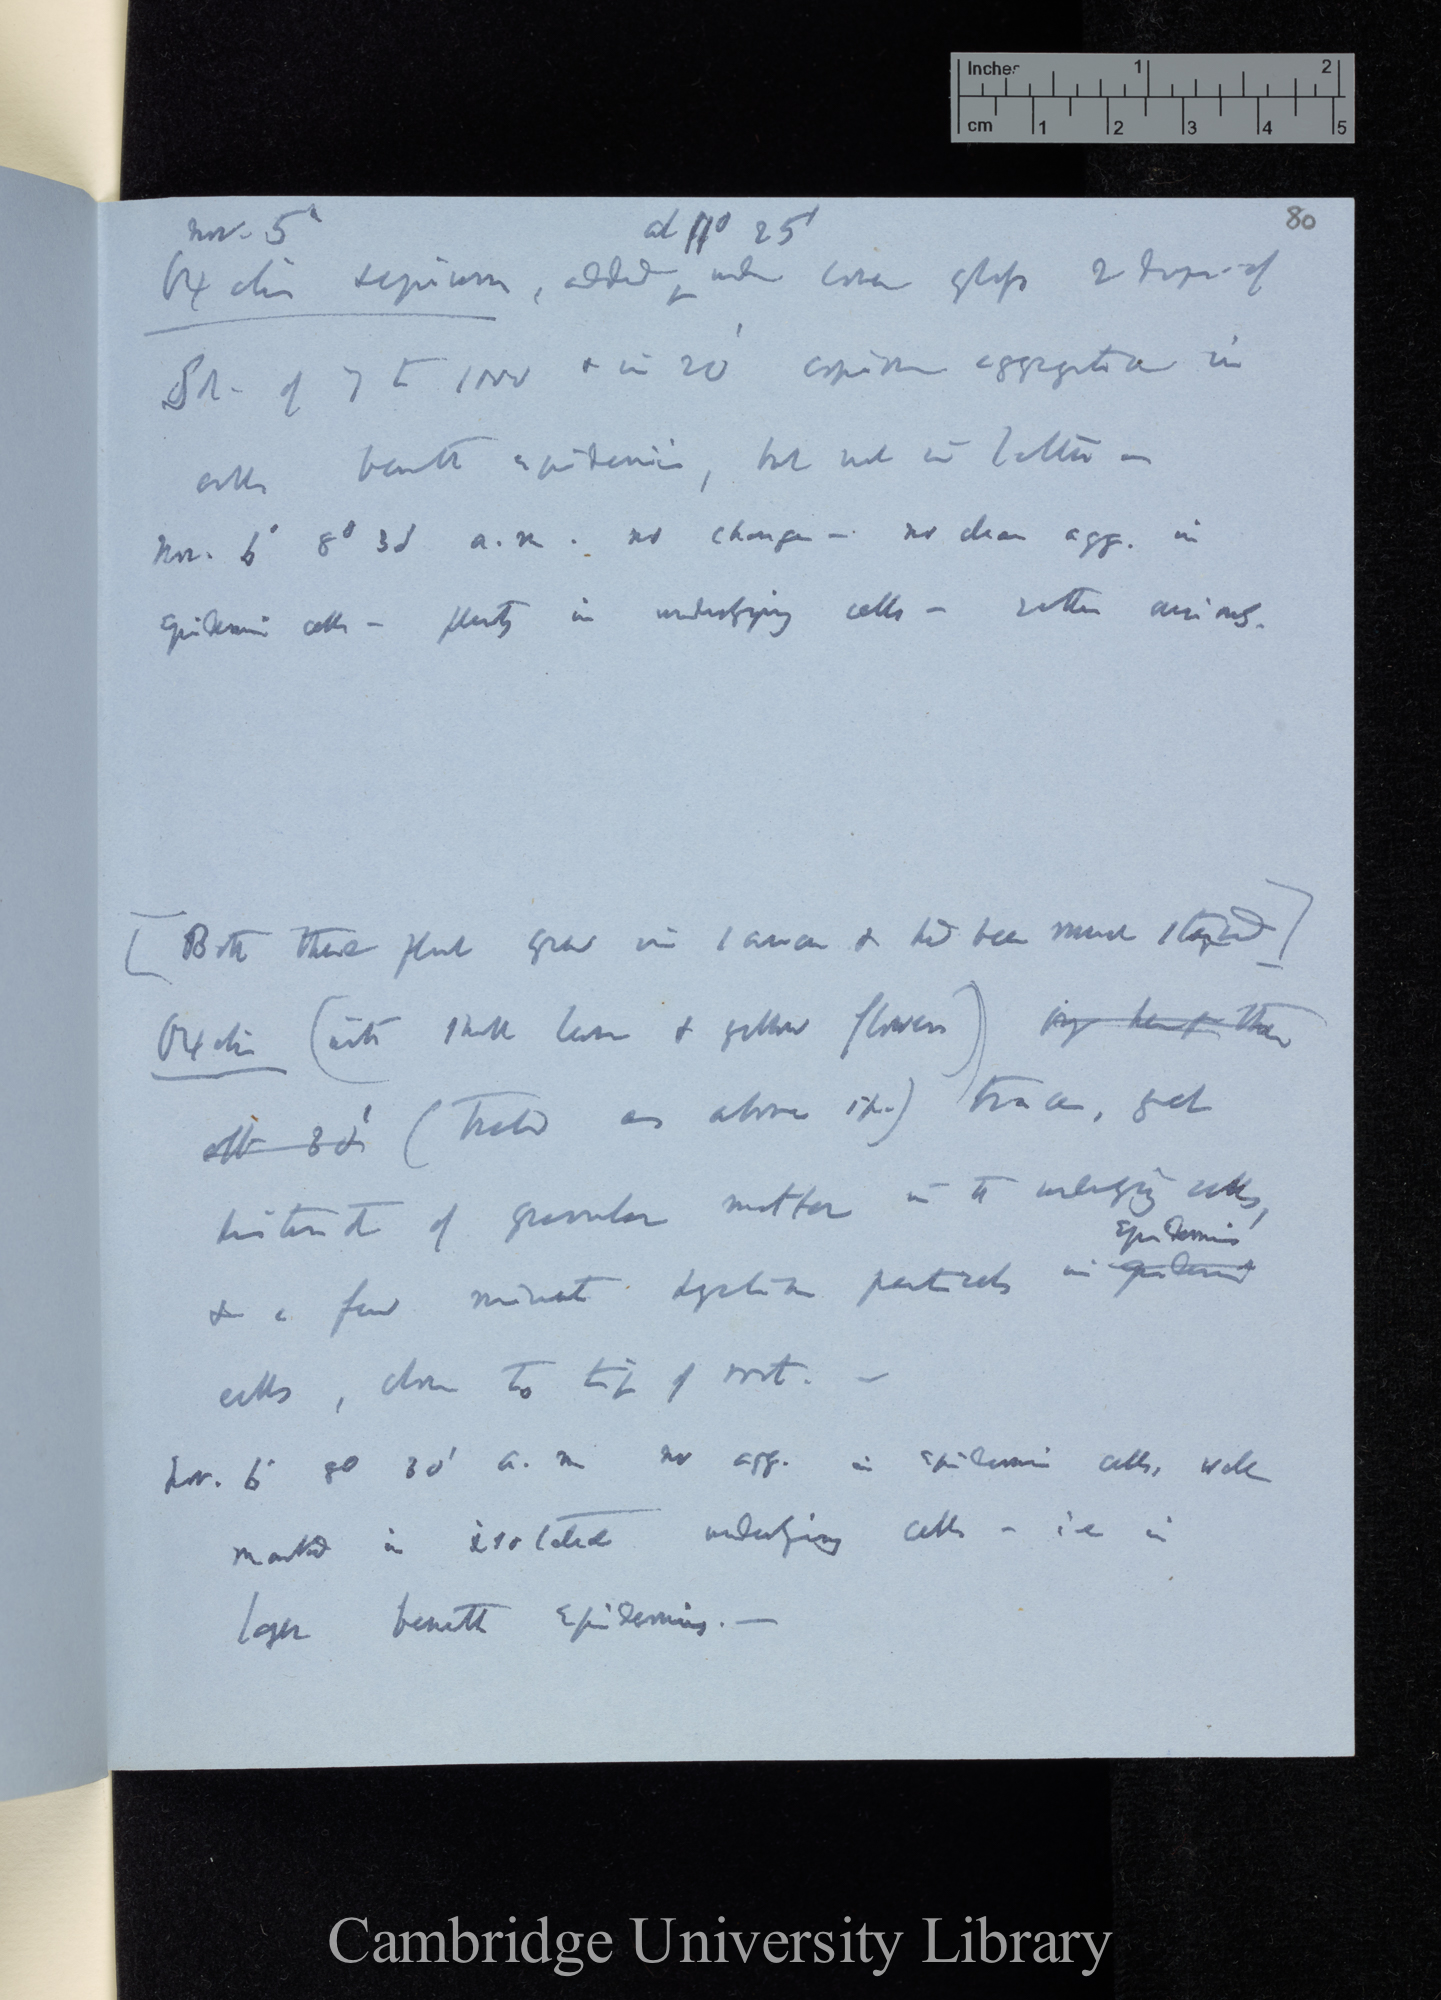 Inches 1 2
cm 1 2 3 4 5
80
Nov. 5' at 11° 25'
Oxalis, added under cover glass 2 drops of
Sol. of 7 to 1000 & in 20' aggregation in
cells beneath epidermis, but not in latter —
Nov. 6' 8° 30' a.m. no change — no clear agg. in
Epidermic cells — plenty in underlying cells — rather curious.
[Both these plants grew in & had been much]
Oxalis (with small leaves & yellow flowers)
after 30' (treated as above) traces, yet
distinct of granular matter in the underlying cells,
Epidermis
& a few minute particles in epidermis
cells, close to tip of root. —
Nov. 6' 8° 30' a.m no agg. in epidermic cells, well
marked in isolated underlying cells — i.e in
layer beneath Epidermis. —
Cambridge University Library